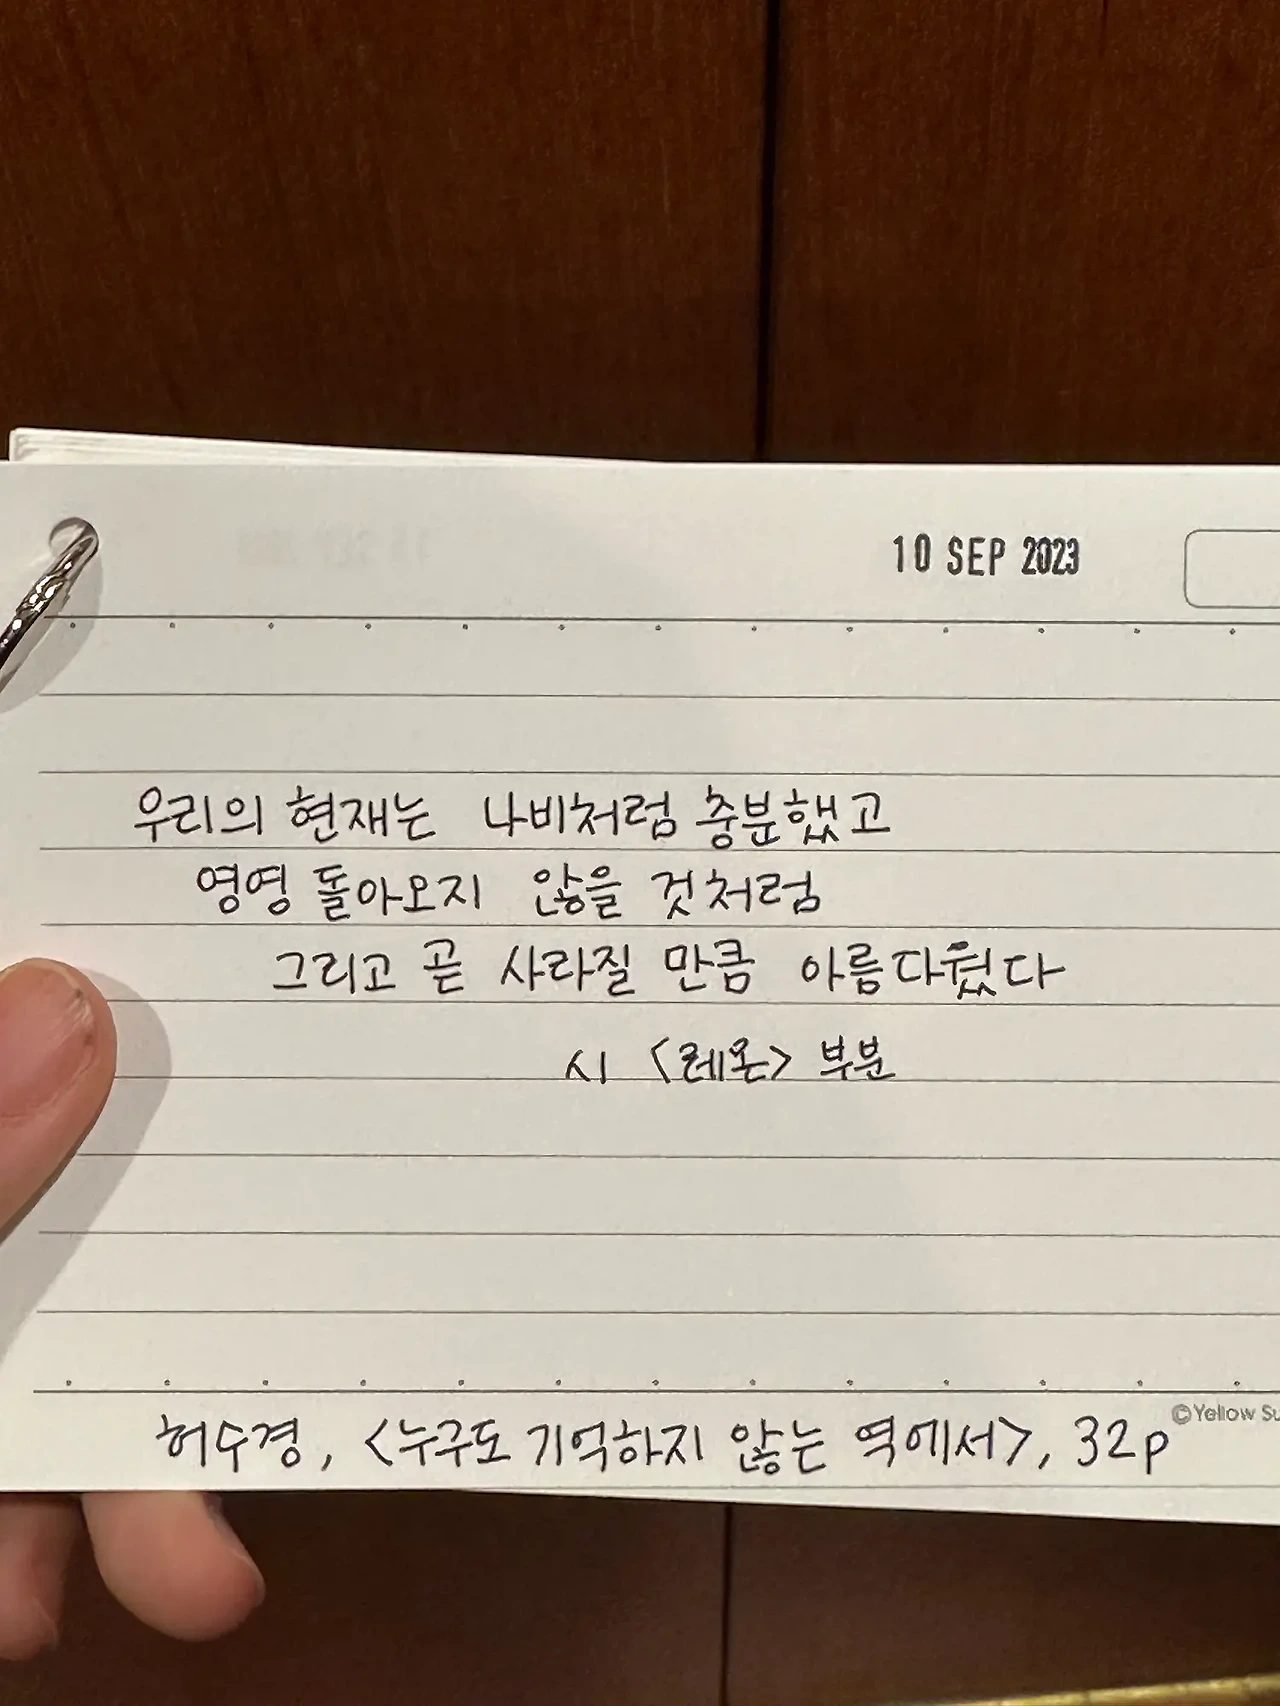 10 SEP 2023
우리의 현재는 나비처럼 충분했고
영영 돌아오지 않을 것처럼
그리고 곧 사라질 만큼 아름다웠다
시 <레몬> 부분
©Yellow
허수경, <누구도 기억하지 않는 역에서>, 32p